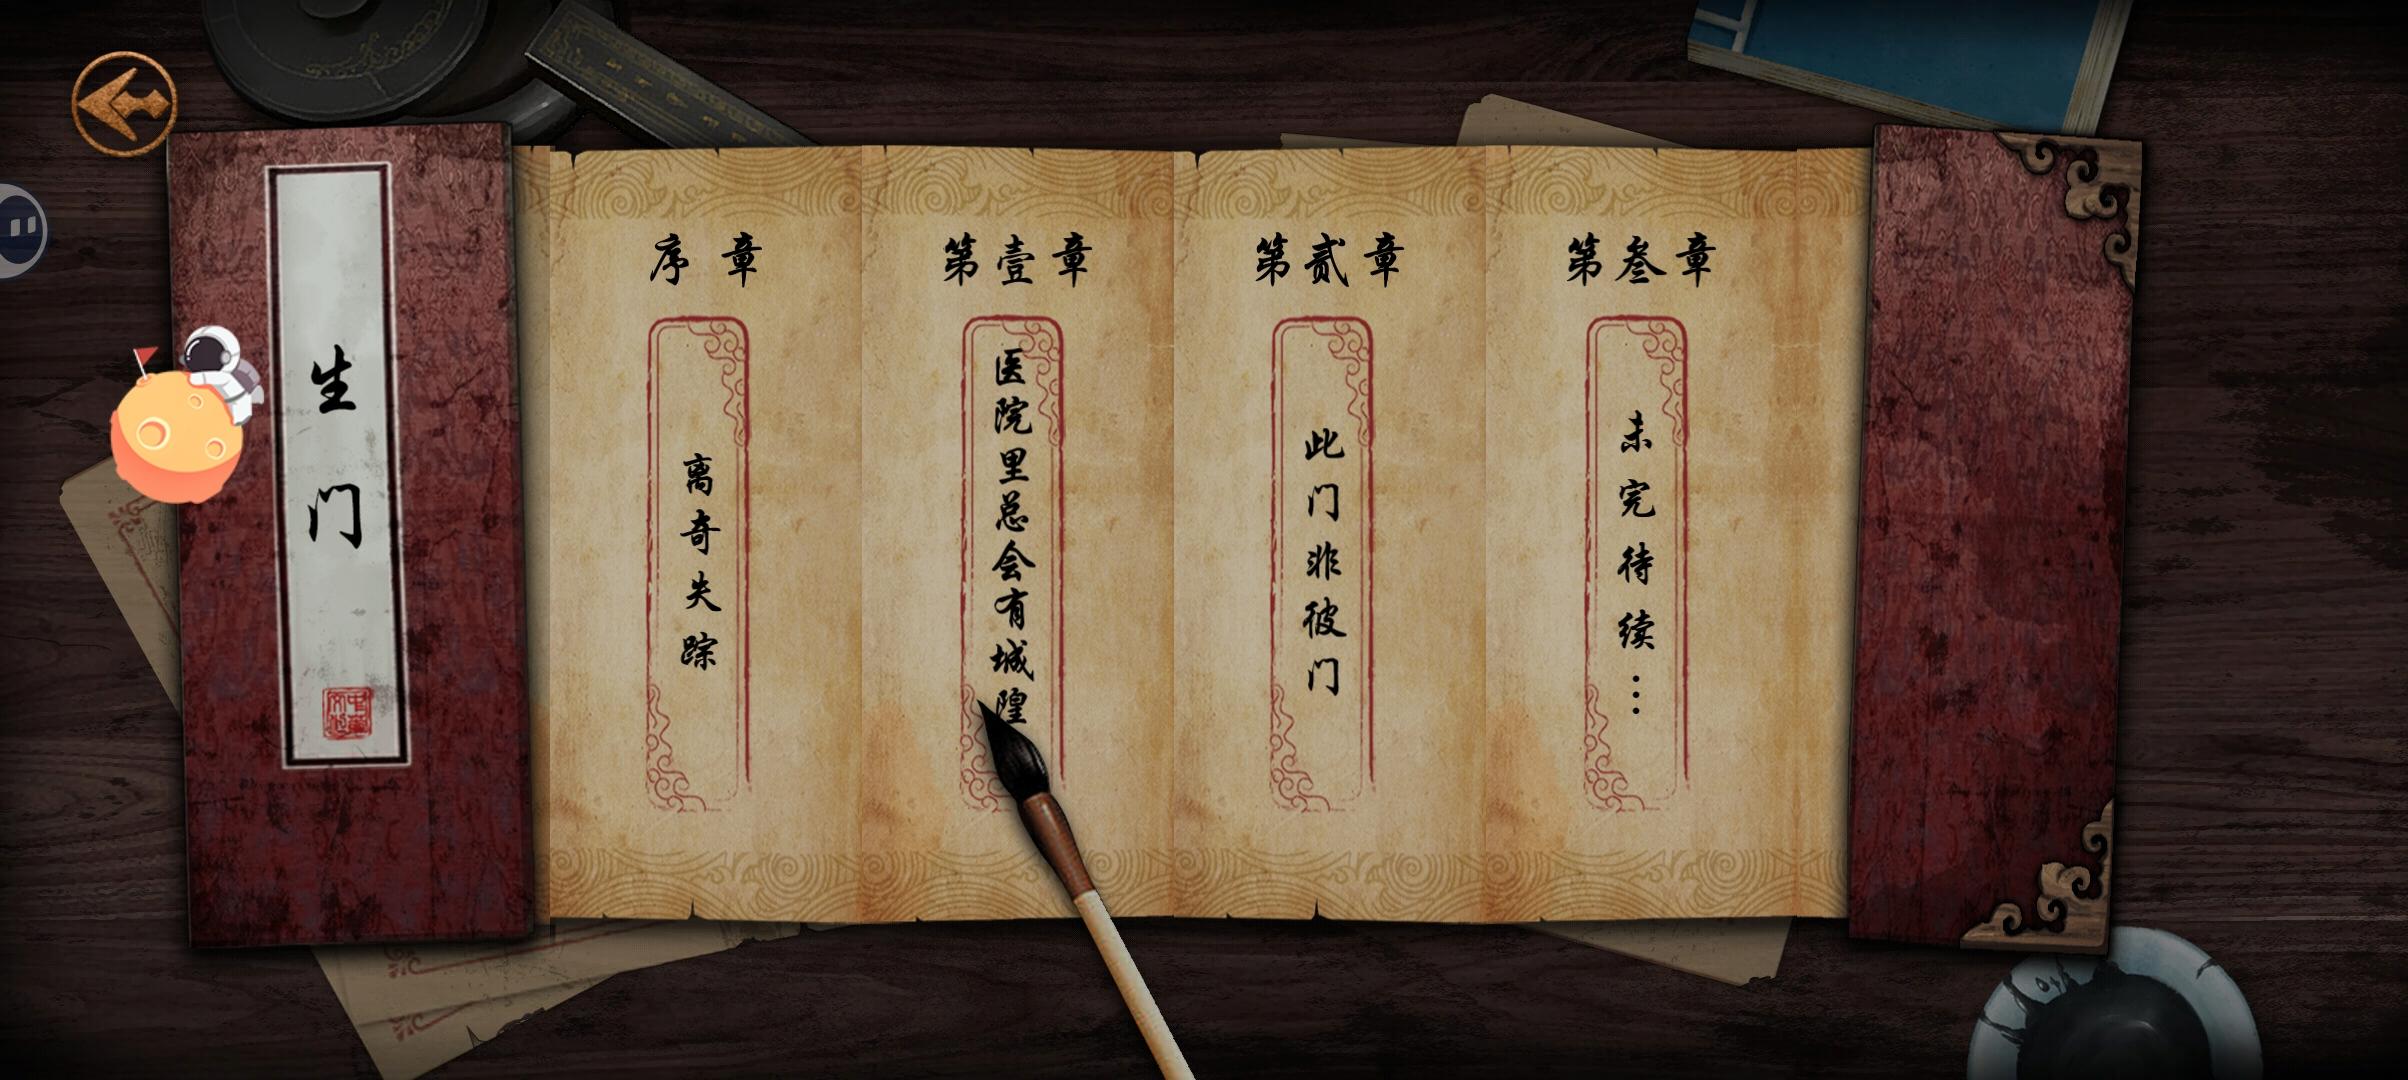 生门
序章
离奇失踪
第壹章
医院里总会有城隍
第贰章
此门非彼门
第叁章
未完待续…